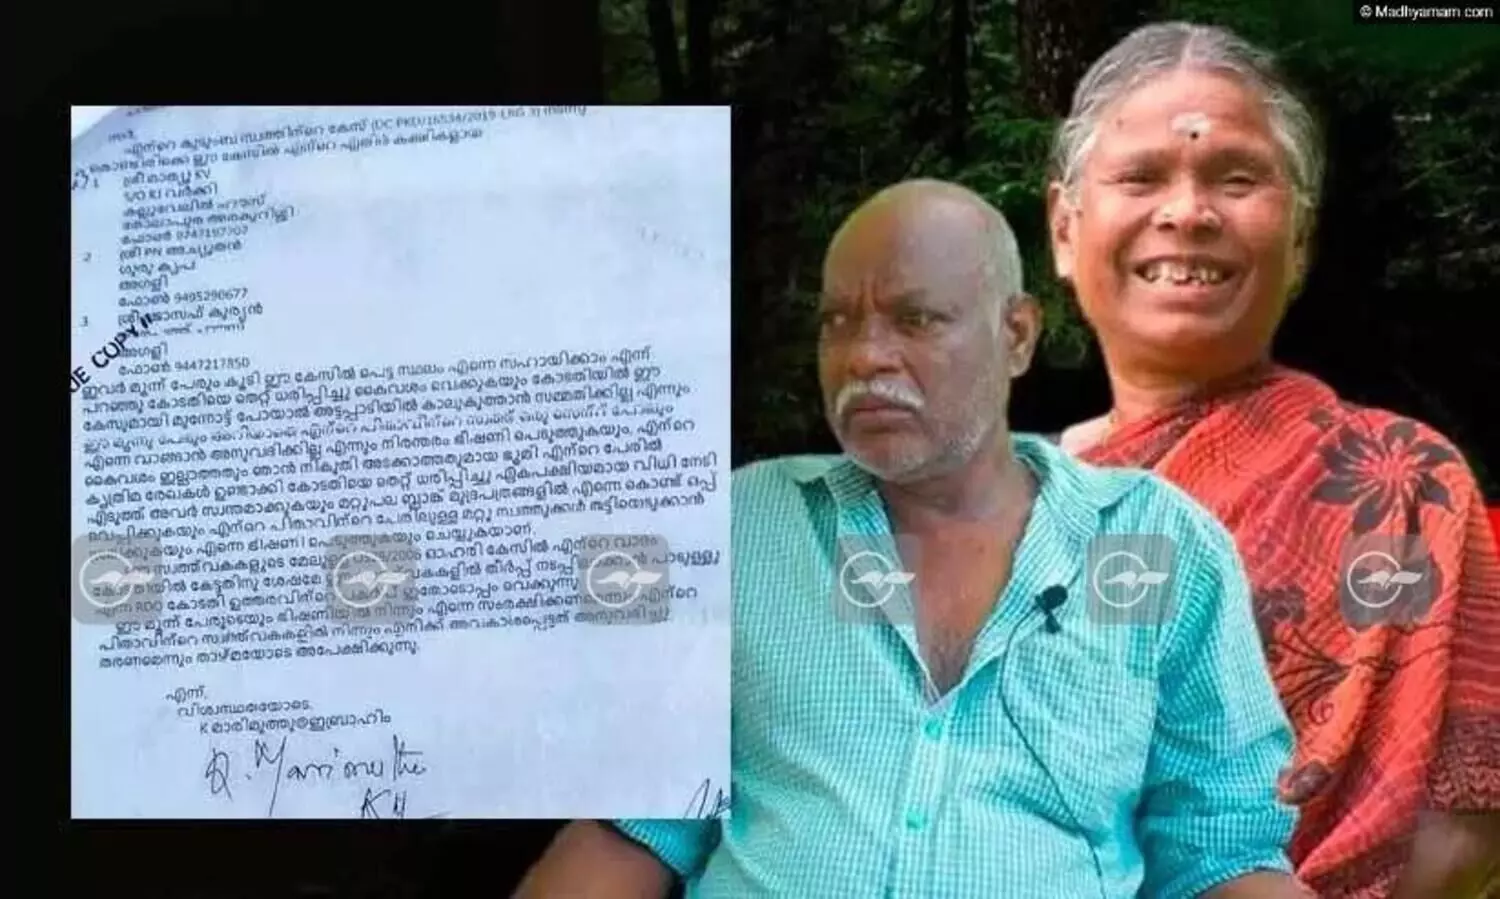 © Madhyamam.com
സർ,
എന്റെ കുടുംബ സ്വത്തിന്റെ കേസ് (DC PKD/16534/2019-LRG 3) നടന്നു
കൊണ്ടിരിക്കെ ഈ കേസിൽ എന്റെ എതിർ കക്ഷികളായ
1 ശ്രീ മാത്യു KV
S/O KJ വർക്കി
കല്ലുവേലിൽ ഹൗസ്
ഫോൺ
2 ശ്രീ PN അച്യുതൻ
ഗുരു കൃപ
അഗളി
ഫോൺ 9495290677
3 ശ്രീ ജോസഫ് കുര്യൻ
ഹൗസ്
അഗളി
ഫോൺ 9447217850
UE COPY
ഇവർ മൂന്ന് പേരും കൂടി ഈ കേസിൽ പെട്ട സ്ഥലം എന്നെ സഹായിക്കാം എന്ന്
പറഞ്ഞു കോടതിയെ തെറ്റ് ധരിപ്പിച്ചു കൈവശം വെക്കുകയും കോടതിയിൽ ഈ
കേസുമായി മുന്നോട്ട് പോയാൽ അട്ടപ്പാടിയിൽ കാലുകുത്താൻ സമ്മതിക്കില്ല എന്നും
ഈ മൂന്നു പേരും അറിയാതെ എന്റെ പിതാവിന്റെ സ്വത്ത് ഒരു സെന്റ് പോലും
എന്നെ വാങ്ങാൻ അനുവദിക്കില്ല എന്നും നിരന്തരം ഭീഷണി പെടുത്തുകയും, എന്റെ
കൈവശം ഇല്ലാത്തതും ഞാൻ നികുതി അടക്കാത്തതുമായ ഭൂമി എന്റെ പേരിൽ
കൃത്രിമ രേഖകൾ ഉണ്ടാക്കി കോടതിയെ തെറ്റ് ധരിപ്പിച്ചു ഏകപക്ഷിയമായ വിധി നേടി
എടുത്ത് അവർ സ്വന്തമാക്കുകയും മറ്റുപല ബ്ലാങ്ക് മുദ്രപത്രങ്ങളിൽ എന്നെ കൊണ്ട് ഒപ്പ്
വെപ്പിക്കുകയും എന്റെ പിതാവിന്റെ പേരിലുള്ള മറ്റു സ്വത്തുക്കൾ തട്ടിയെടുക്കാൻ
എന്നെ ഭീഷണി പെടുത്തുകയും ചെയ്യുകയാണ്.
സ്വത്ത്‌വകകളുടെ മേലുള്ള ഓഹരി കേസിൽ എന്റെ വാദം
കോടതിയിൽ കേട്ടതിനു ശേഷമേ തീർപ്പ് പാടുള്ളു
എന്ന RDO കോടതി ഉത്തരവിന്റെ ഇതോടൊപ്പം വെക്കുന്നു
ഈ മൂന്ന് പേരുടെയും ഭീഷണിയിൽ നിന്നും എന്നെ സംരക്ഷിക്കണമെന്നും എന്റെ
പിതാവിന്റെ സ്വത്ത്‌വകകളിൽ നിന്നും എനിക്ക് അവകാശപ്പെട്ടത് അനുവദിച്ചു
തരണമെന്നും താഴ്മയോടെ അപേക്ഷിക്കുന്നു.
എന്ന്,
വിശ്വസ്തതയോടെ,
K മാരിമുത്തു@ഇബ്രാഹിം
K. Marimuthu